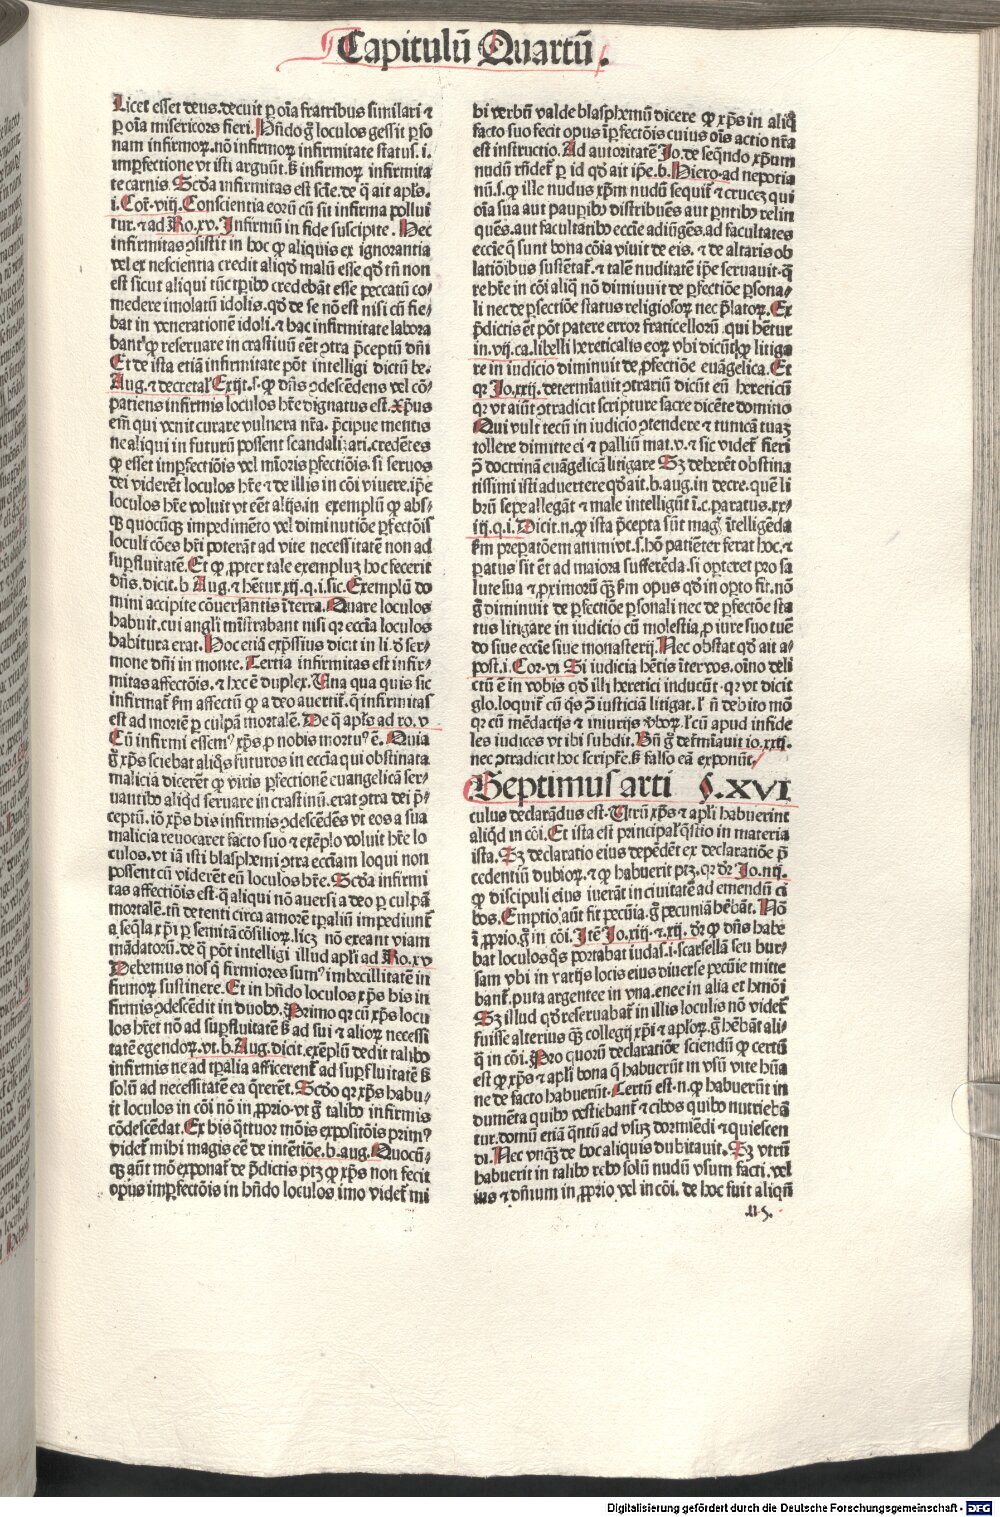 Capitulū Quartū.
Licet esset deus. decuit ꝑ oīa fratribus similari ⁊
ꝑ oīa misericors fieri. Hn̄do ḡ loculos gessit ꝑso
nam infirmoꝝ. nō infirmoꝝ infirmitate status. i.
imperfectione vt isti arguūt. ß infirmoꝝ infirmita
te carnis. Scd̄a infirmitas est scīe. de q̄ ait apl's.
i. Cor̄. viij. Conscientia eorū cū sit infirma pollui
tur. ⁊ ad Ro. xv. Infirmū in fide suscipite. Hec
infirmitas ꝯsistit in hoc ꝙ aliquis ex ignorantia
vel ex nescientia credit aliqd̄ malū esse qd̄ tn̄ non
est sicut aliqui tūc tꝑibꝰ credebāt esse peccatū co-
medere imolatū idolis. qd̄ de se nō est nisi cū fie-
bat in venerationē idoli. ⁊ hac infirmitate labora
bant ꝙ reseruare in crastinū eēt ꝯtra p̄ceptū dn̄i
Et de ista etiā infirmitate pōt intelligi dictū be.
Aug. ⁊ decretal' Exijt. s. ꝙ dn̄s ꝯdescēdens vel cō-
patiens infirmis loculos hr̄e dignatus est. Xp̄us
em̄ qui venit curare vulnera nr̄a. p̄cipue mentis
ne aliqui in futurū possent scandalizari. credētes
ꝙ esset imꝑfectiōis vel mīoris ꝑfectiōis. si seruos
dei viderēt loculos hr̄e ⁊ de illis in cōi viuere. ip̄e
loculos hr̄e voluit vt eēt alijs. in exemplū ꝙ abs-
qꝫ quocūqꝫ impedimēto vel diminutiōe ꝑfectiōis
loculi cōes hr̄i poterāt ad vite necessitatē non ad
suꝑfluitatē. Et ꝙ ꝓpter tale exempluꝫ hoc fecerit
dn̄s. dicit. b Aug. ⁊ hētur. xij. q. i. sic. Exemplū do
mini accipite cōuersantis ī terra. Quare loculos
habuit. cui angli mīstrabant nisi qꝛ eccīa loculos
habitura erat. Hoc etiā exp̄ssius dicit in li. d̄ ser-
mone dn̄i in monte. Tertia infirmitas est infir-
mitas affectōis. ⁊ hec ē duplex. Una qua quis sic
infirmat̄ ẜm affectū ꝙ a deo auertit̄. q̄ infirmitas
est ad mortē ꝑ culpā mortalē. De q̄ apl's ad ro. v
Cū infirmi essemꝰ xp̄s ꝓ nobis mortuꝰ ē. Quia
ḡ xp̄s sciebat aliq̄s futuros in eccīa qui obstinata
malicia dicerēt ꝙ viris ꝑfectionē euangelicā ser-
uantibꝰ aliqd̄ seruare in crastinū. erat ꝯtra dei p̄-
ceptū. iō xp̄s bis infirmis ꝯdescēdēs vt eos a sua
malicia reuocaret facto suo ⁊ exēplo voluit hr̄e lo
culos. vt iā isti blasphemi ꝯtra eccīam loqui non
possent cū viderēt eū loculos hr̄e. Scd̄a infirmi
tas affectiōis est. q̄ aliqui nō auersi a deo ꝑ culpā
mortalē. tn̄ detenti circa amorē tꝑaliū impediunt̄
a seq̄la xp̄i ꝑ semitā cōsilioꝝ. licꝫ nō exeant viam
mādatorū. de q̄ pōt intelligi illud apl'i ad Ro. xv
Debemus nos q̄ firmiores sumꝰ imbecillitatē in
firmoꝝ sustinere. Et in hn̄do loculos xp̄s his in
firmis ꝯdescēdit in duobꝰ. Primo qꝛ cū xp̄s locu
los hr̄et nō ad suꝑfluitatē ß ad sui ⁊ alioꝝ necessi
tatē egendoꝝ. vt. b. Aug. dicit. exēplū dedit talibꝰ
infirmis ne ad tꝑalia afficerent̄ ad suꝑfluitatē ß
solū ad necessitatē ea q̄rerēt. Scd̄o qꝛ xp̄s habu-
it loculos in cōi nō in ꝓprio. vt ḡ talibꝰ infirmis
cōdescēdat. Ex his q̄ttuor mōis expositōis primꝰ
videt̄ mihi magis eē de intētiōe. b. aug. Quocū-
qꝫ aūt mō exponat̄ de p̄dictis ptꝫ ꝙ xp̄s non fecit
opus imꝑfectōis in hn̄do loculos imo videt̄ mi
hi verbū valde blasphemū dicere ꝙ xp̄s in aliq̄
facto suo fecit opus īꝑfectōis cuius oīs actio nr̄a
est instructio. Ad autoritatē Io. de seq̄ndo xp̄um
nudū rn̄det̄ ꝑ id qd̄ ait ip̄e. b. Hiero. ad nepotia
nū. s. ꝙ ille nudus xp̄m nudū sequit̄ ⁊ crucez qui
oīa sua aut pauꝑibꝰ distribuēs aut pn̄tibꝰ relin
quēs. aut facultatibꝰ eccīe adiūgēs. ad facultates
eccīe q̄ sunt bona cōia viuit de eis. ⁊ de altaris ob
latiōibus sustentat̄. ⁊ talē nuditatē ip̄e seruauit. q̄
re hr̄e in cōi aliq̄ nō diminuit de ꝑfectiōe ꝑsona-
li nec de ꝑfectiōe status religiosoꝝ nec p̄latoꝝ. Ex
p̄dictis em̄ pōt patere error fraticellorū qui hētur
in. vij. ca. libelli hereticalis eoꝝ vbi dicūt ꝙ litiga
re in iudicio diminuit de ꝑfectiōe euāgelica. Et
qꝛ Io. xxij. determīauit ꝯtrariū dicūt eū hereticū
qꝛ vt aiūt ꝯtradicit scripture sacre dicēte domino
Qui vult tecū in iudicio ꝯtendere ⁊ tunicā tuaꝫ
tollere dimitte ei ⁊ palliū mat. v. ⁊ sic videt̄ fieri
ꝯ̄ doctrinā euāgelicā litigare Sꝫ deberēt obstina
tissimi isti aduertere qd̄ ait. b. aug. in decre. quē li
brū sepe allegāt ⁊ male intelligūt ī. c. paratus. xx-
iij. q. i. Dicit. n. ꝙ ista p̄cepta sūt maḡ ītelligēda
ẜm preparatōem animi vt. s. hō patiēter ferat hoc. ⁊
paratus sit ēt ad maiora sufferēda. si opteret pro sa
lute sua ⁊ ꝓximorū qꝫ ẜm opus qd̄ in opto fit. nō
ḡ diminuit de ꝑfectiōe ꝑsonali nec de ꝑfectōe sta
tus litigare in iudicio cū molestia ꝓ iure suo tuē
do siue eccīe siue monasterij. Nec obstat qd̄ ait a-
post. i. Cor. vi Si iudicia hētis īter vos. oīno deli
ctū ē in vobis qd̄ illi heretici inducūt. qꝛ vt dicit
glo. loquit̄ cū q̄s ꝓ̄ iusticiā litigat. l' n̄ debito mō
qꝛ cū mēdacijs ⁊ iniurijs v̄boꝝ. l' cū apud infide
les iudices vt ibi subdit. Bn̄ ḡ det̄miauit io. xxij.
nec ꝯtradicit hoc script̄e. ß falso eā exponūt.
Septimus arti §. XVI
culus declarādus est. Utrū xp̄s ⁊ apl'i habuerint
aliqd̄ in cōi. Et ista est principal' q̄stio in materia
ista. Sꝫ declaratio eius depēdet ex declaratiōe p̄
cedentiū dubioꝝ. ⁊ ꝙ habuerit ptꝫ. qꝛ dr̄. Io. iiij.
ꝙ discipuli eius iuerāt in ciuitatē ad emendū ci
bos. Emptio aūt fit pecūia. ḡ pecuniā hēbāt. Nō
ī ꝓprio. ḡ in cōi. Itē Io. xiij. ⁊. xij. dr̄ ꝙ dn̄s habe
bat loculos q̄s portabat iudas. i. scarsellā seu bur-
sam vbi in varijs locis eius diuerse pecūie mitte
bant̄. puta argentee in vna. enee in alia et hmōi
Sꝫ illud qd̄ reseruabat̄ in illis loculis nō videt̄
fuisse alterius qꝫ collegij xp̄i ⁊ apl'oꝝ. ḡ hēbāt ali-
q̄ in cōi. Pro quorū declaratiōe sciendū ꝙ certū
est ꝙ xp̄s ⁊ apl'i bona q̄ habuerūt in vsū vite hūa
ne de facto habuerūt. Certū est. n. ꝙ habuerūt in
dumēta quibꝰ vestiebant̄ ⁊ cibos quibꝰ nutriebā
tur. domū etiā q̄ntū ad vsuꝫ dormiēdi ⁊ quiescen
di. Nec vnqꝫ de hoc aliquis dubitauit. Sꝫ vtrū
habuerit in talibꝰ rebꝰ solū nudū vsum facti. vel
ius ⁊ dn̄ium in ꝓprio vel in cōi. de hoc fuit aliqn̄
Digitalisierung gefördert durch die Deutsche Forschungsgemeinschaft - DFG